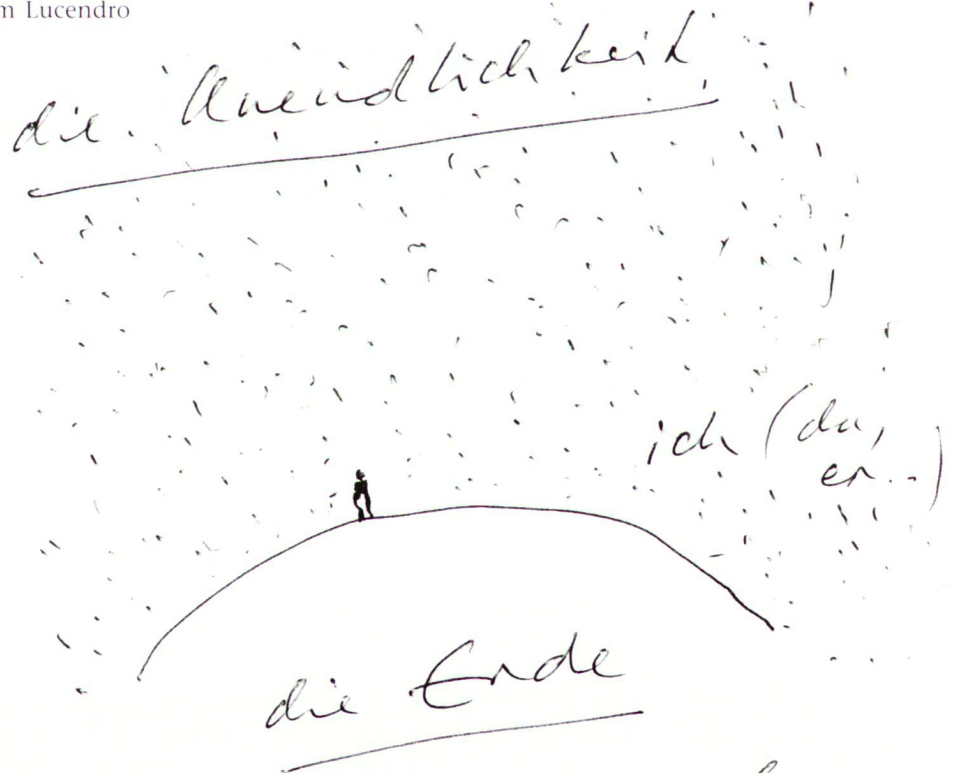 m Lucendro
die Unendlichkeit
ich (du,
er..)
die Erde